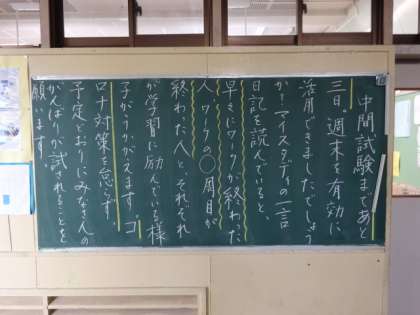 中間試験まであと
三日。週末を有効に
活用できましたでしょう
か！マイスタディの一言
日記を読んでいると、
早くにワークが終わった
人、ワークの〇周目が
終わった人とそれぞれ
が学習に励んでいる様
子がうかがえます。コ
ロナ対策を怠らず、
予定どおりにみなさんの
がんばりが試されることを
願います。